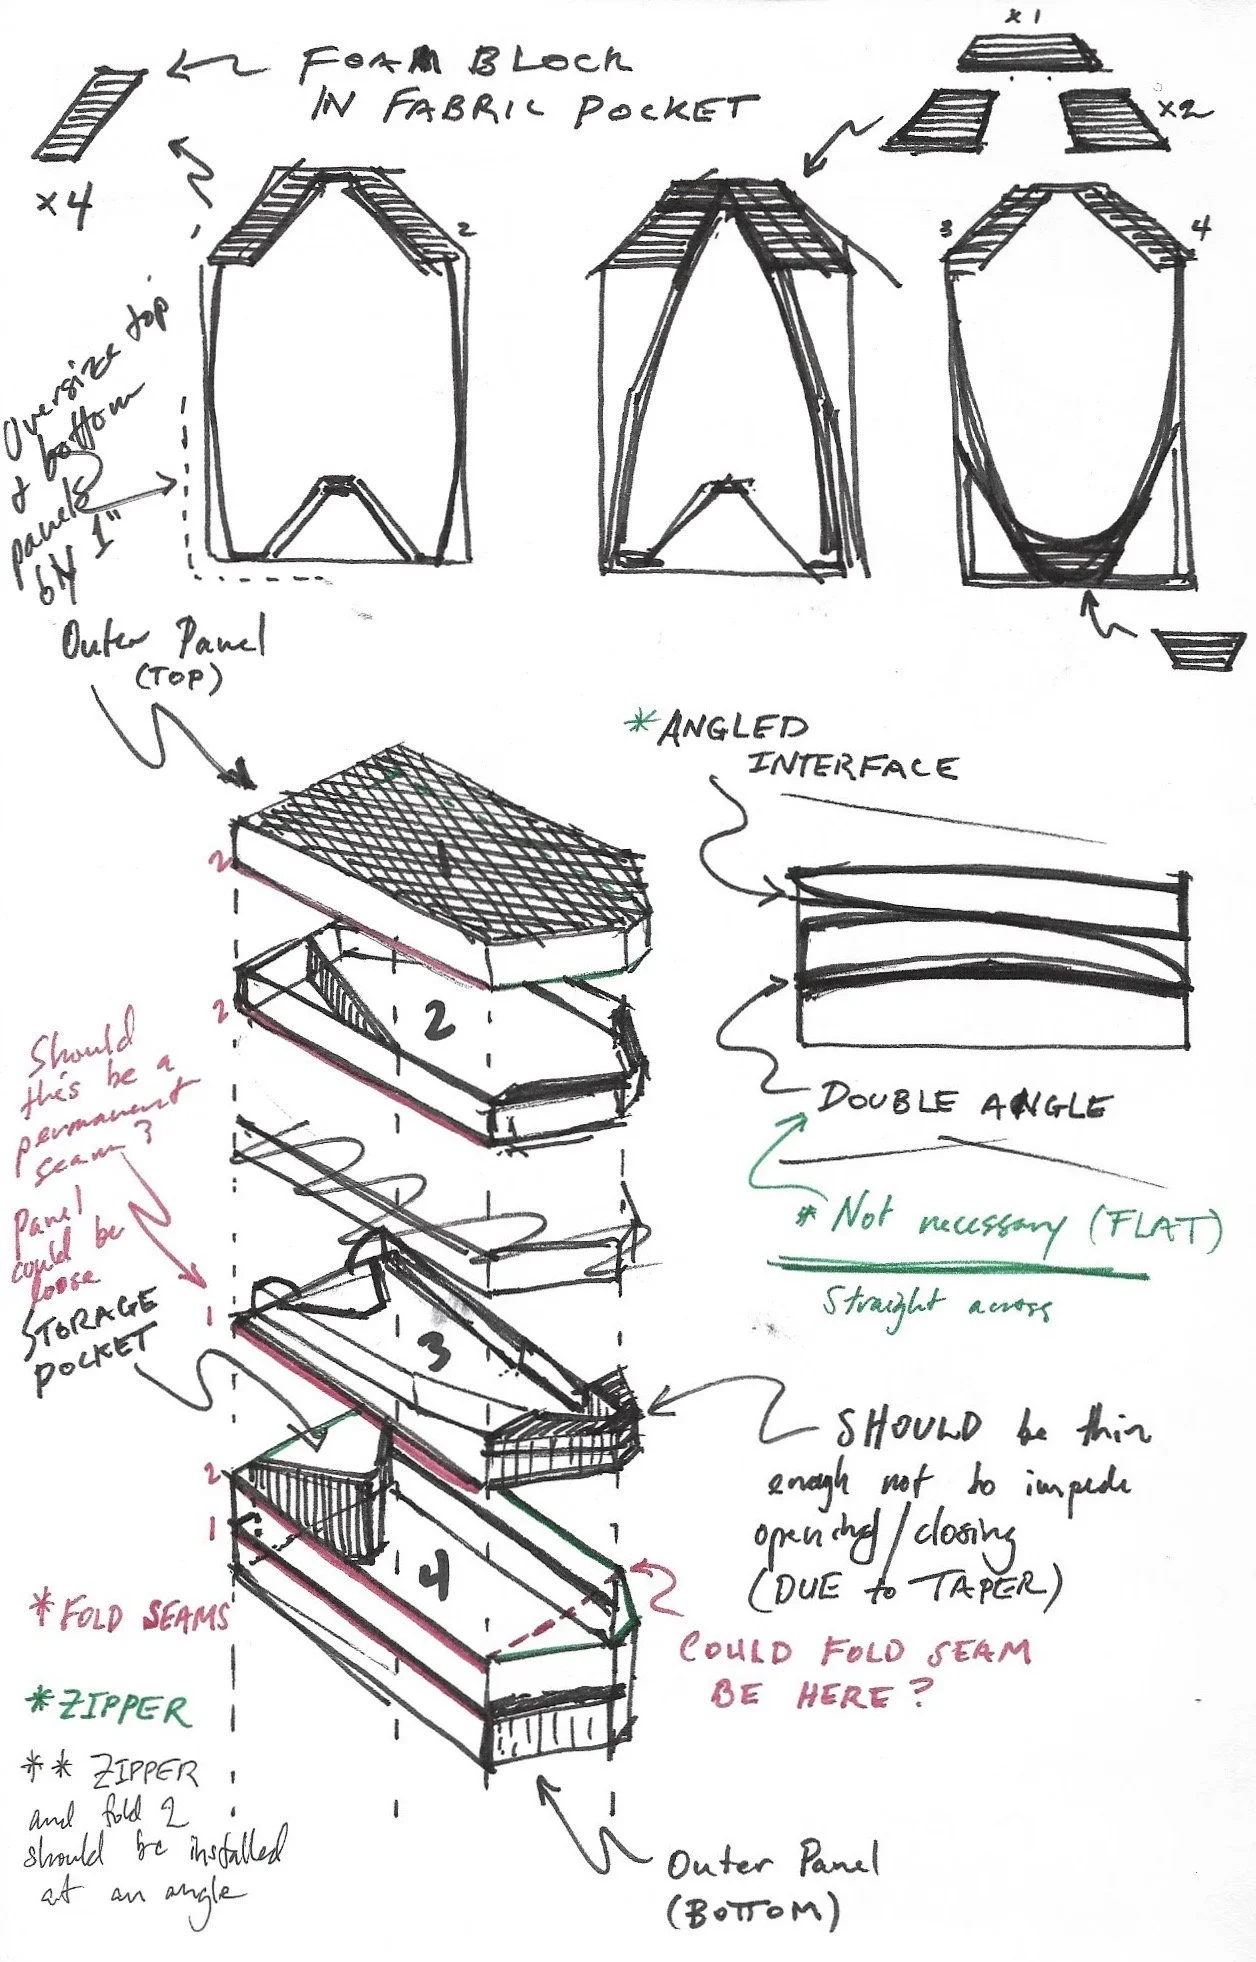 x1
FOAM BLOCK
IN FABRIC POCKET
x2
x4
2
3
4
Oversize top
& bottom
panels
by 1"
Outer Panel
(TOP)
*ANGLED
INTERFACE
1
2
2
2
Should
this be a
permanent
seam?
Panel
could be
loose
DOUBLE ANGLE
* Not necessary (FLAT)
Straight across
STORAGE
POCKET
1
3
SHOULD be thin
enough not to impede
opening/closing
(DUE to TAPER)
2
1
4
* FOLD SEAMS
COULD FOLD SEAM
BE HERE?
*ZIPPER
** ZIPPER
and fold 2
should be installed
at an angle
Outer Panel
(BOTTOM)